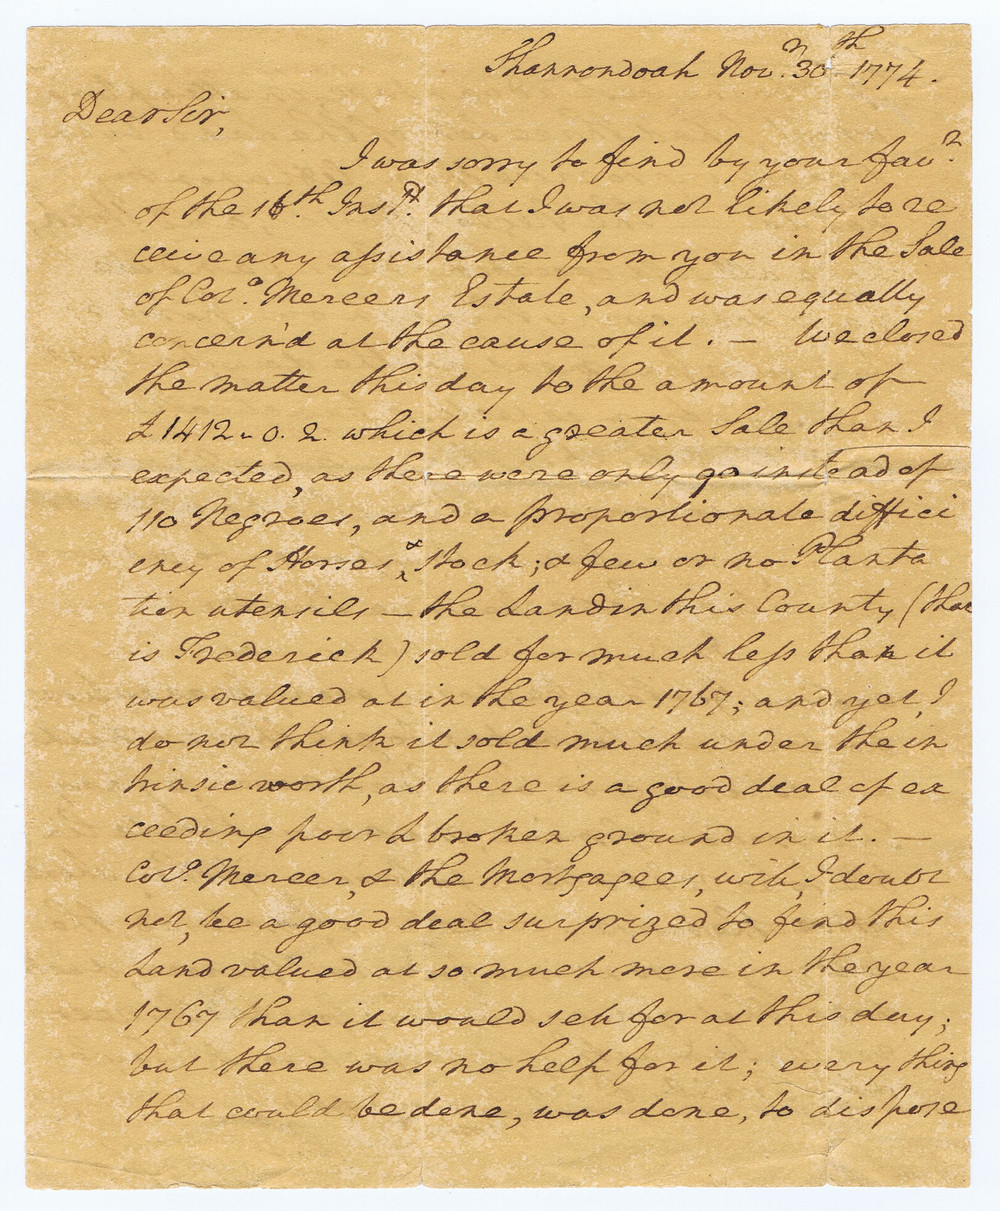 Shannondoah Novr. 30th 1774.
Dear Sir,
I was sorry to find by your favr.
of the 16th. Instt. that I was not likely to re
ceive any assistance from you in the Sale
of Colo. Mercers Estate, and was equally
concern'd at the cause of it. — We closed
the matter this day to the amount of
£1412.. 0. 2. which is a greater Sale than I
expected, as there were only 90 instead of
110 Negroes, and a proportionate difici
ency of Horses, & Stock; & few or no Planta
tion utensils — the Land in this County (that
is Frederick) sold for much less than it
was valued at in the year 1767; and yet, I
do not think it sold much under the in
trinsic worth, as there is a good deal of ex
ceeding poor & broken ground in it. —
Colo. Mercer, & the Mortgagees, will, I doubt
not, be a good deal surprized to find this
Land valued at so much more in the year
1767 than it would sell for at this day;
but there was no help for it; every thing
that could be done, was done, to dispose